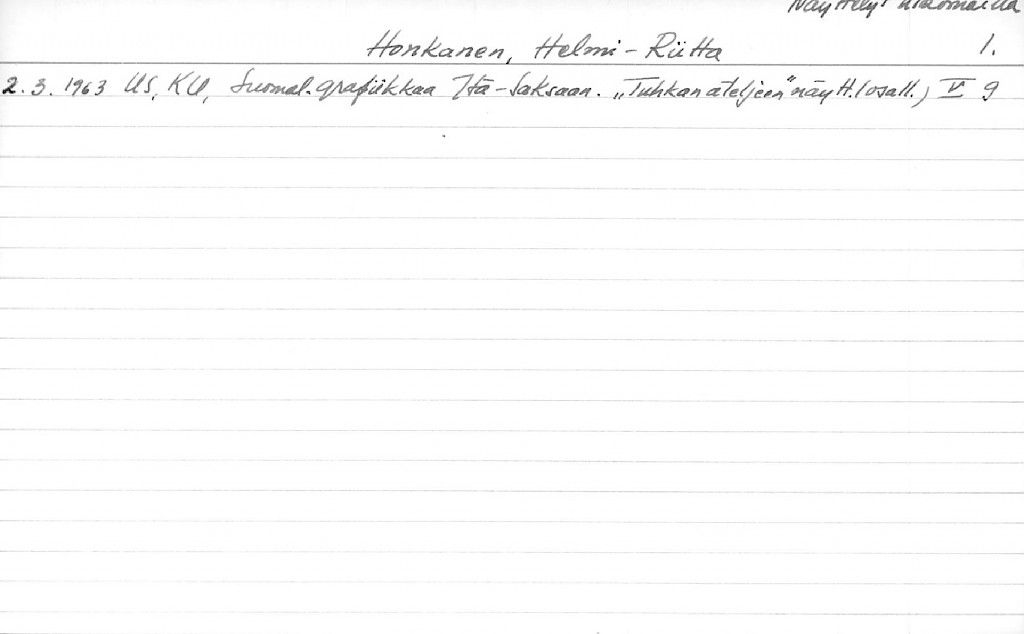 Näyttelyt ulkomailla
Honkanen, Helmi-Riitta 1.
2.3. 1963 US, KU, Suomal. grafiikkaa Itä-Saksaan. „Tuhkan ateljeen" näytt. (osall.) V 9